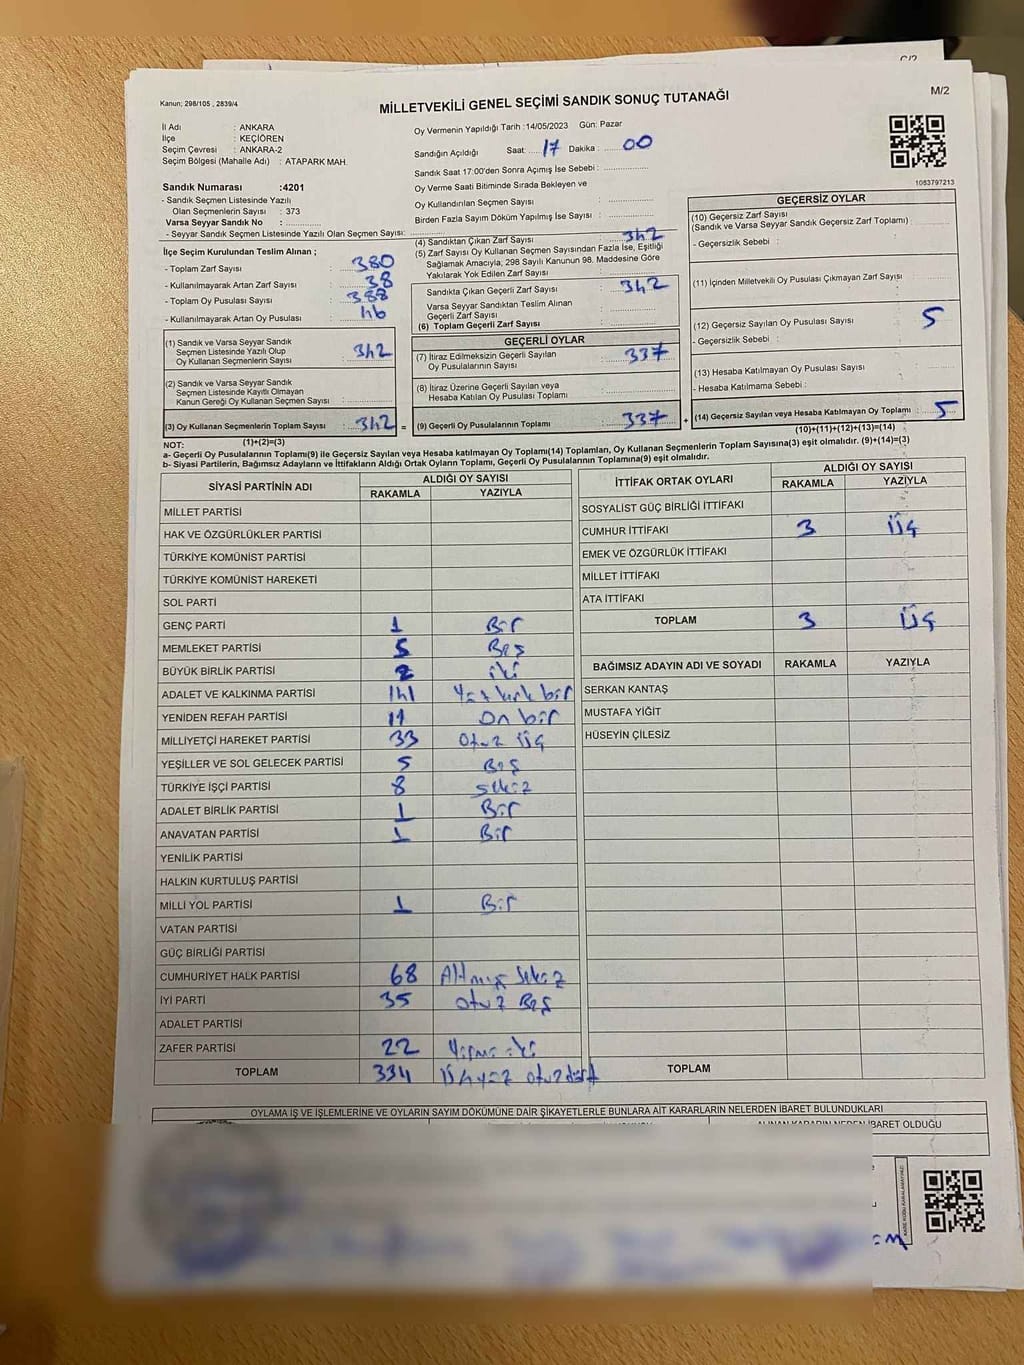 C/2
Kanun; 298/105 , 2839/4
MİLLETVEKİLİ GENEL SEÇİMİ SANDIK SONUÇ TUTANAĞI
M/2
İl Adı : ANKARA
İlçe : KEÇİÖREN
Seçim Çevresi : ANKARA-2
Seçim Bölgesi (Mahalle Adı) : ATAPARK MAH.
Sandık Numarası :4201
- Sandık Seçmen Listesinde Yazılı
Olan Seçmenlerin Sayısı : 373
Varsa Seyyar Sandık No :
- Seyyar Sandık Seçmen Listesinde Yazılı Olan Seçmen Sayısı:
Oy Vermenin Yapıldığı Tarih :14/05/2023 Gün: Pazar
Sandığın Açıldığı Saat: 17 Dakika : 00
Sandık Saat 17:00'den Sonra Açımış İse Sebebi :
Oy Verme Saati Bitiminde Sırada Bekleyen ve
Oy Kullandırılan Seçmen Sayısı :
Birden Fazla Sayım Döküm Yapılmış İse Sayısı :
1053797213
İlçe Seçim Kurulundan Teslim Alınan ;
- Toplam Zarf Sayısı : 380
- Kullanılmayarak Artan Zarf Sayısı : 38
- Toplam Oy Pusulası Sayısı : 388
- Kullanılmayarak Artan Oy Pusulası : 46
(1) Sandık ve Varsa Seyyar Sandık
Seçmen Listesinde Yazılı Olup
Oy Kullanan Seçmenlerin Sayısı : 342
(2) Sandık ve Varsa Seyyar Sandık
Seçmen Listesinde Kayıtlı Olmayan
Kanun Gereği Oy Kullanan Seçmen Sayısı :
(3) Oy Kullanan Seçmenlerin Toplam Sayısı : 342 =
(1)+(2)=(3)
(4) Sandıktan Çıkan Zarf Sayısı : 342
(5) Zarf Sayısı Oy Kullanan Seçmen Sayısından Fazla İse, Eşitliği
Sağlamak Amacıyla; 298 Sayılı Kanunun 98. Maddesine Göre
Yakılarak Yok Edilen Zarf Sayısı :
Sandıkta Çıkan Geçerli Zarf Sayısı : 342
Varsa Seyyar Sandıktan Teslim Alınan
Geçerli Zarf Sayısı :
(6) Toplam Geçerli Zarf Sayısı :
GEÇERLİ OYLAR
(7) İtiraz Edilmeksizin Geçerli Sayılan
Oy Pusulalarının Sayısı : 337
(8) İtiraz Üzerine Geçerli Sayılan veya
Hesaba Katılan Oy Pusulası Toplamı :
(9) Geçerli Oy Pusulalarının Toplamı : 337 +
GEÇERSİZ OYLAR
(10) Geçersiz Zarf Sayısı
(Sandık ve Varsa Seyyar Sandık Geçersiz Zarf Toplamı) :
- Geçersizlik Sebebi :
(11) İçinden Milletvekili Oy Pusulası Çıkmayan Zarf Sayısı :
(12) Geçersiz Sayılan Oy Pusulası Sayısı : 5
- Geçersizlik Sebebi :
(13) Hesaba Katılmayan Oy Pusulası Sayısı :
- Hesaba Katılmama Sebebi :
(14) Geçersiz Sayılan veya Hesaba Katılmayan Oy Toplamı : 5
(10)+(11)+(12)+(13)=(14)
NOT:
a- Geçerli Oy Pusulalarının Toplamı(9) ile Geçersiz Sayılan veya Hesaba katılmayan Oy Toplamı(14) Toplamları, Oy Kullanan Seçmenlerin Toplam Sayısına(3) eşit olmalıdır. (9)+(14)=(3)
b- Siyasi Partilerin, Bağımsız Adayların ve İttifakların Aldığı Ortak Oyların Toplamı, Geçerli Oy Pusulalarının Toplamına(9) eşit olmalıdır.
SİYASİ PARTİNİN ADI
ALDIĞI OY SAYISI
RAKAMLA YAZIYLA
MİLLET PARTİSİ
HAK VE ÖZGÜRLÜKLER PARTİSİ
TÜRKİYE KOMÜNİST PARTİSİ
TÜRKİYE KOMÜNİST HAREKETİ
SOL PARTİ
GENÇ PARTİ 1 Bir
MEMLEKET PARTİSİ 5 Beş
BÜYÜK BİRLİK PARTİSİ 2 iki
ADALET VE KALKINMA PARTİSİ 141 Yüz kırk bir
YENİDEN REFAH PARTİSİ 11 On bir
MİLLİYETÇİ HAREKET PARTİSİ 33 Otuz Üç
YEŞİLLER VE SOL GELECEK PARTİSİ 5 Beş
TÜRKİYE İŞÇİ PARTİSİ 8 sekiz
ADALET BİRLİK PARTİSİ 1 Bir
ANAVATAN PARTİSİ 1 Bir
YENİLİK PARTİSİ
HALKIN KURTULUŞ PARTİSİ
MİLLİ YOL PARTİSİ 1 Bir
VATAN PARTİSİ
GÜÇ BİRLİĞİ PARTİSİ
CUMHURİYET HALK PARTİSİ 68 Altmış Sekiz
İYİ PARTİ 35 Otuz Beş
ADALET PARTİSİ
ZAFER PARTİSİ 22 Yirmi iki
TOPLAM 334 Üçyüz otuzdört
İTTİFAK ORTAK OYLARI
ALDIĞI OY SAYISI
RAKAMLA YAZIYLA
SOSYALİST GÜÇ BİRLİĞİ İTTİFAKI
CUMHUR İTTİFAKI 3 Üç
EMEK VE ÖZGÜRLÜK İTTİFAKI
MİLLET İTTİFAKI
ATA İTTİFAKI
TOPLAM 3 Üç
BAĞIMSIZ ADAYIN ADI VE SOYADI RAKAMLA YAZIYLA
SERKAN KANTAŞ
MUSTAFA YİĞİT
HÜSEYİN ÇİLESİZ
TOPLAM
OYLAMA İŞ VE İŞLEMLERİNE VE OYLARIN SAYIM DÖKÜMÜNE DAİR ŞİKAYETLERLE BUNLARA AİT KARARLARIN NELERDEN İBARET BULUNDUKLARI
ALINAN KARARIN NEDEN İBARET OLDUĞU